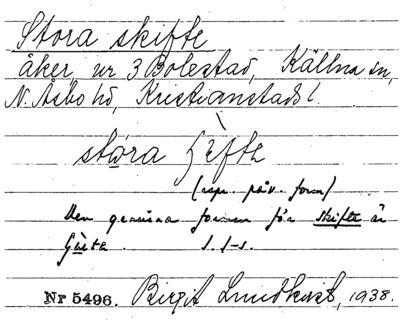 Stora skifte
åker nr 3 Bolestad, Källna sn,
N. Åsbo hd, Kristianstads l.
stora
(rspr. påv. form)
Den genuina formen för skifte är
s. f-s.
Nr 5496. Birgit Lundkvist, 1938.